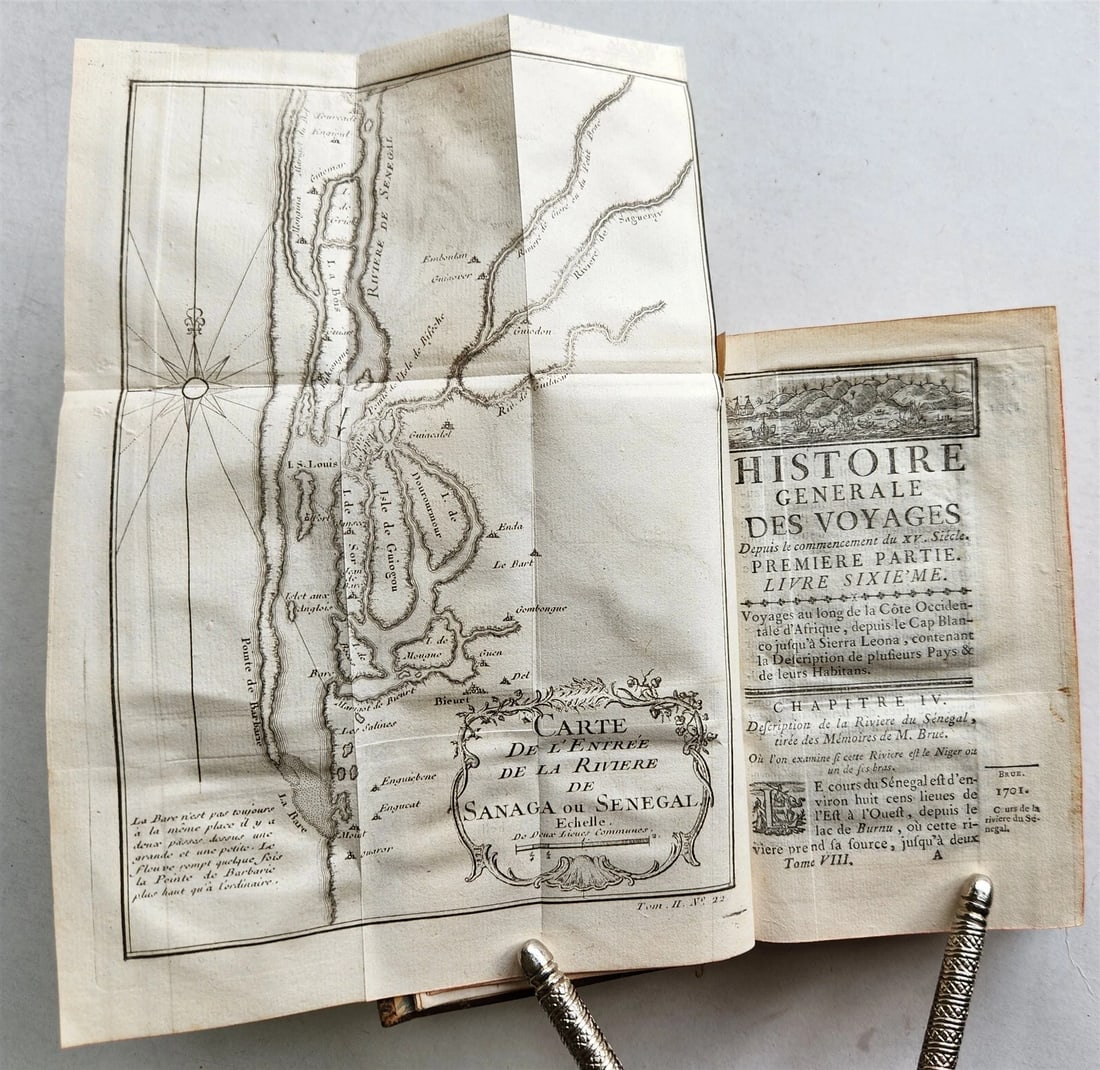 Engioul
Guiomar
RIVIERE DE SENEGAL
I. de Griel
Emboulan
Guiaorer
Riviere de
Sagueray
Guiodon
Guiacalel
I. S. Louis
Fort
I. de Sor
Isle de Guiogou
I. de
Dourourmour
Enda
Le Bart
Islet aux
Anglois
Gombongue
I. de
Mougne
Guen
Del
Bieurt
Marigot de Bieurt
Les Salines
Enguiebene
Engueat
Pointe de Barbarie
La Bare
CARTE
DE L'ENTRÉE
DE LA RIVIERE
DE
SANAGA OU SENEGAL.
Echelle.
De Deux Lieues Communes.
La Bare n'est pas toujours
à la même place il y a
deux passes dessus une
grande et une petite. Le
Fleuve rompt quelque fois
la Pointe de Barbarie
plus haut qu'à l'ordinaire.
Tom. II. N.° 22
HISTOIRE
GENERALE
DES VOYAGES
Depuis le commencement du XV.e Siécle.
PREMIERE PARTIE.
LIVRE SIXIE'ME.
Voyages au long de la Côte Occiden-
tale d'Afrique, depuis le Cap Blan-
co jusqu'à Sierra Leona, contenant
la Description de plusieurs Pays &
de leurs Habitans.
CHAPITRE IV.
Description de la Riviere du Sénegal,
tirée des Mémoires de M. Brue.
Où l'on examine si cette Riviere est le Niger ou
un de ses bras.
LE cours du Sénegal est d'en-
viron huit cens lieues de
l'Est à l'Ouest, depuis le
lac de Burnu, où cette ri-
viere prend sa source, jusqu'à deux
Tome VIII. A
BRUE.
1701.
Cours de la
riviere du Sé-
negal.